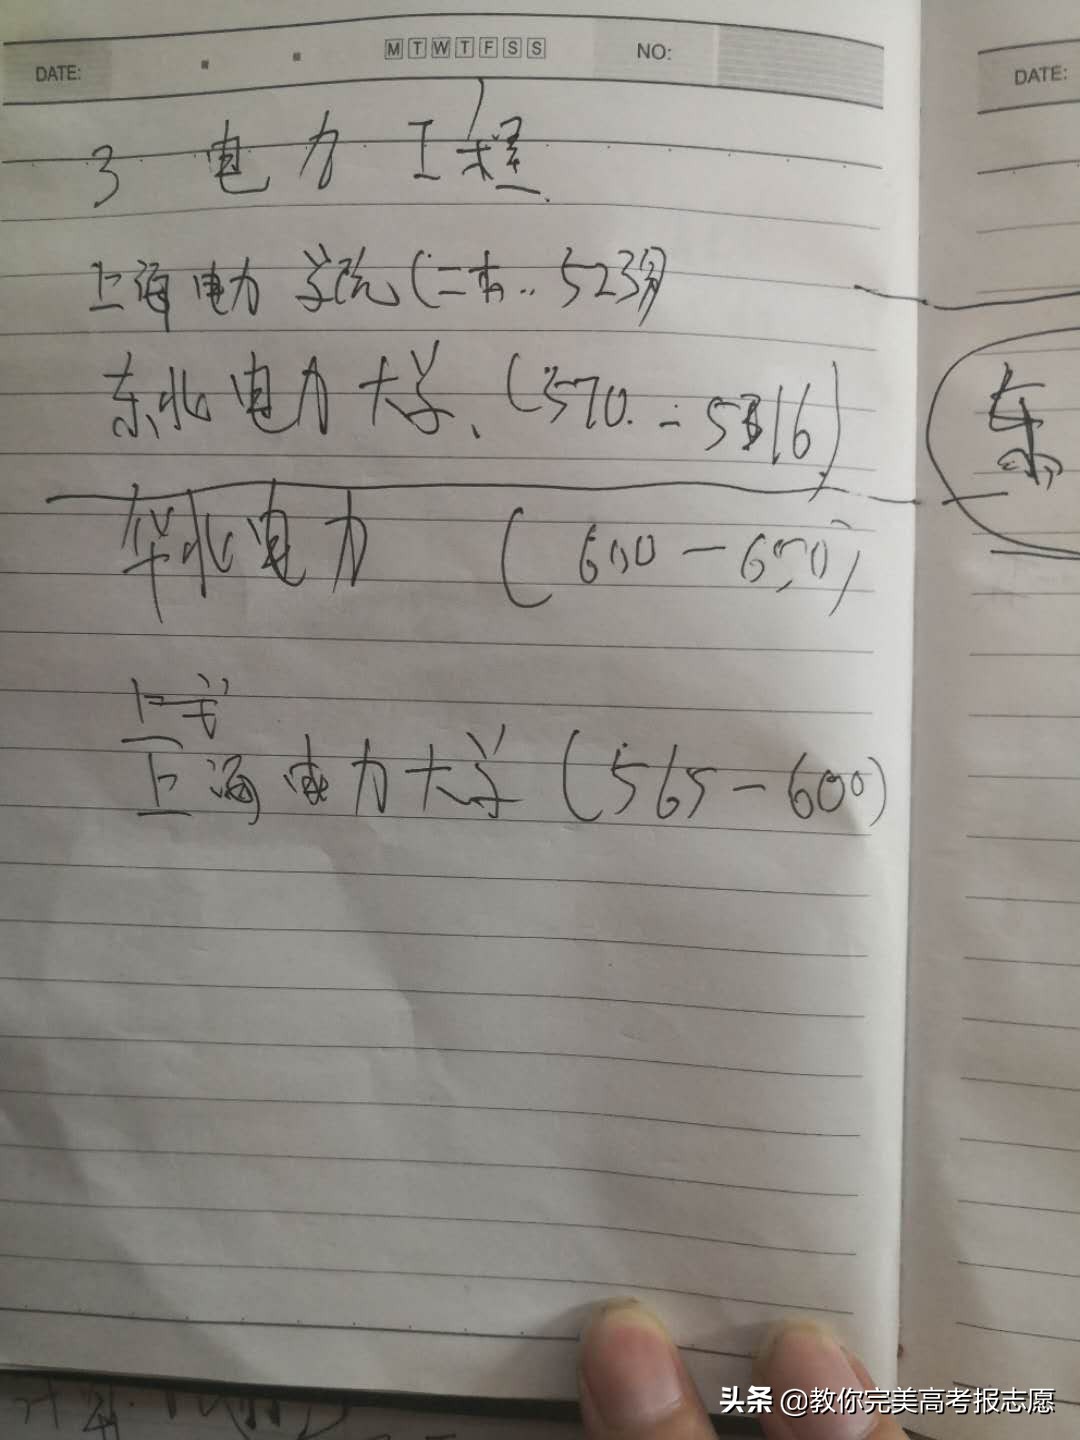 DATE: M T W T F S S NO:
DATE:
3 电力工程
上海电力学院(二本..523
东北电力大学、(570.-5
华北电力 (600-650)
上
上海电力大学(565-600)
东
头条 @教你完美高考报志愿